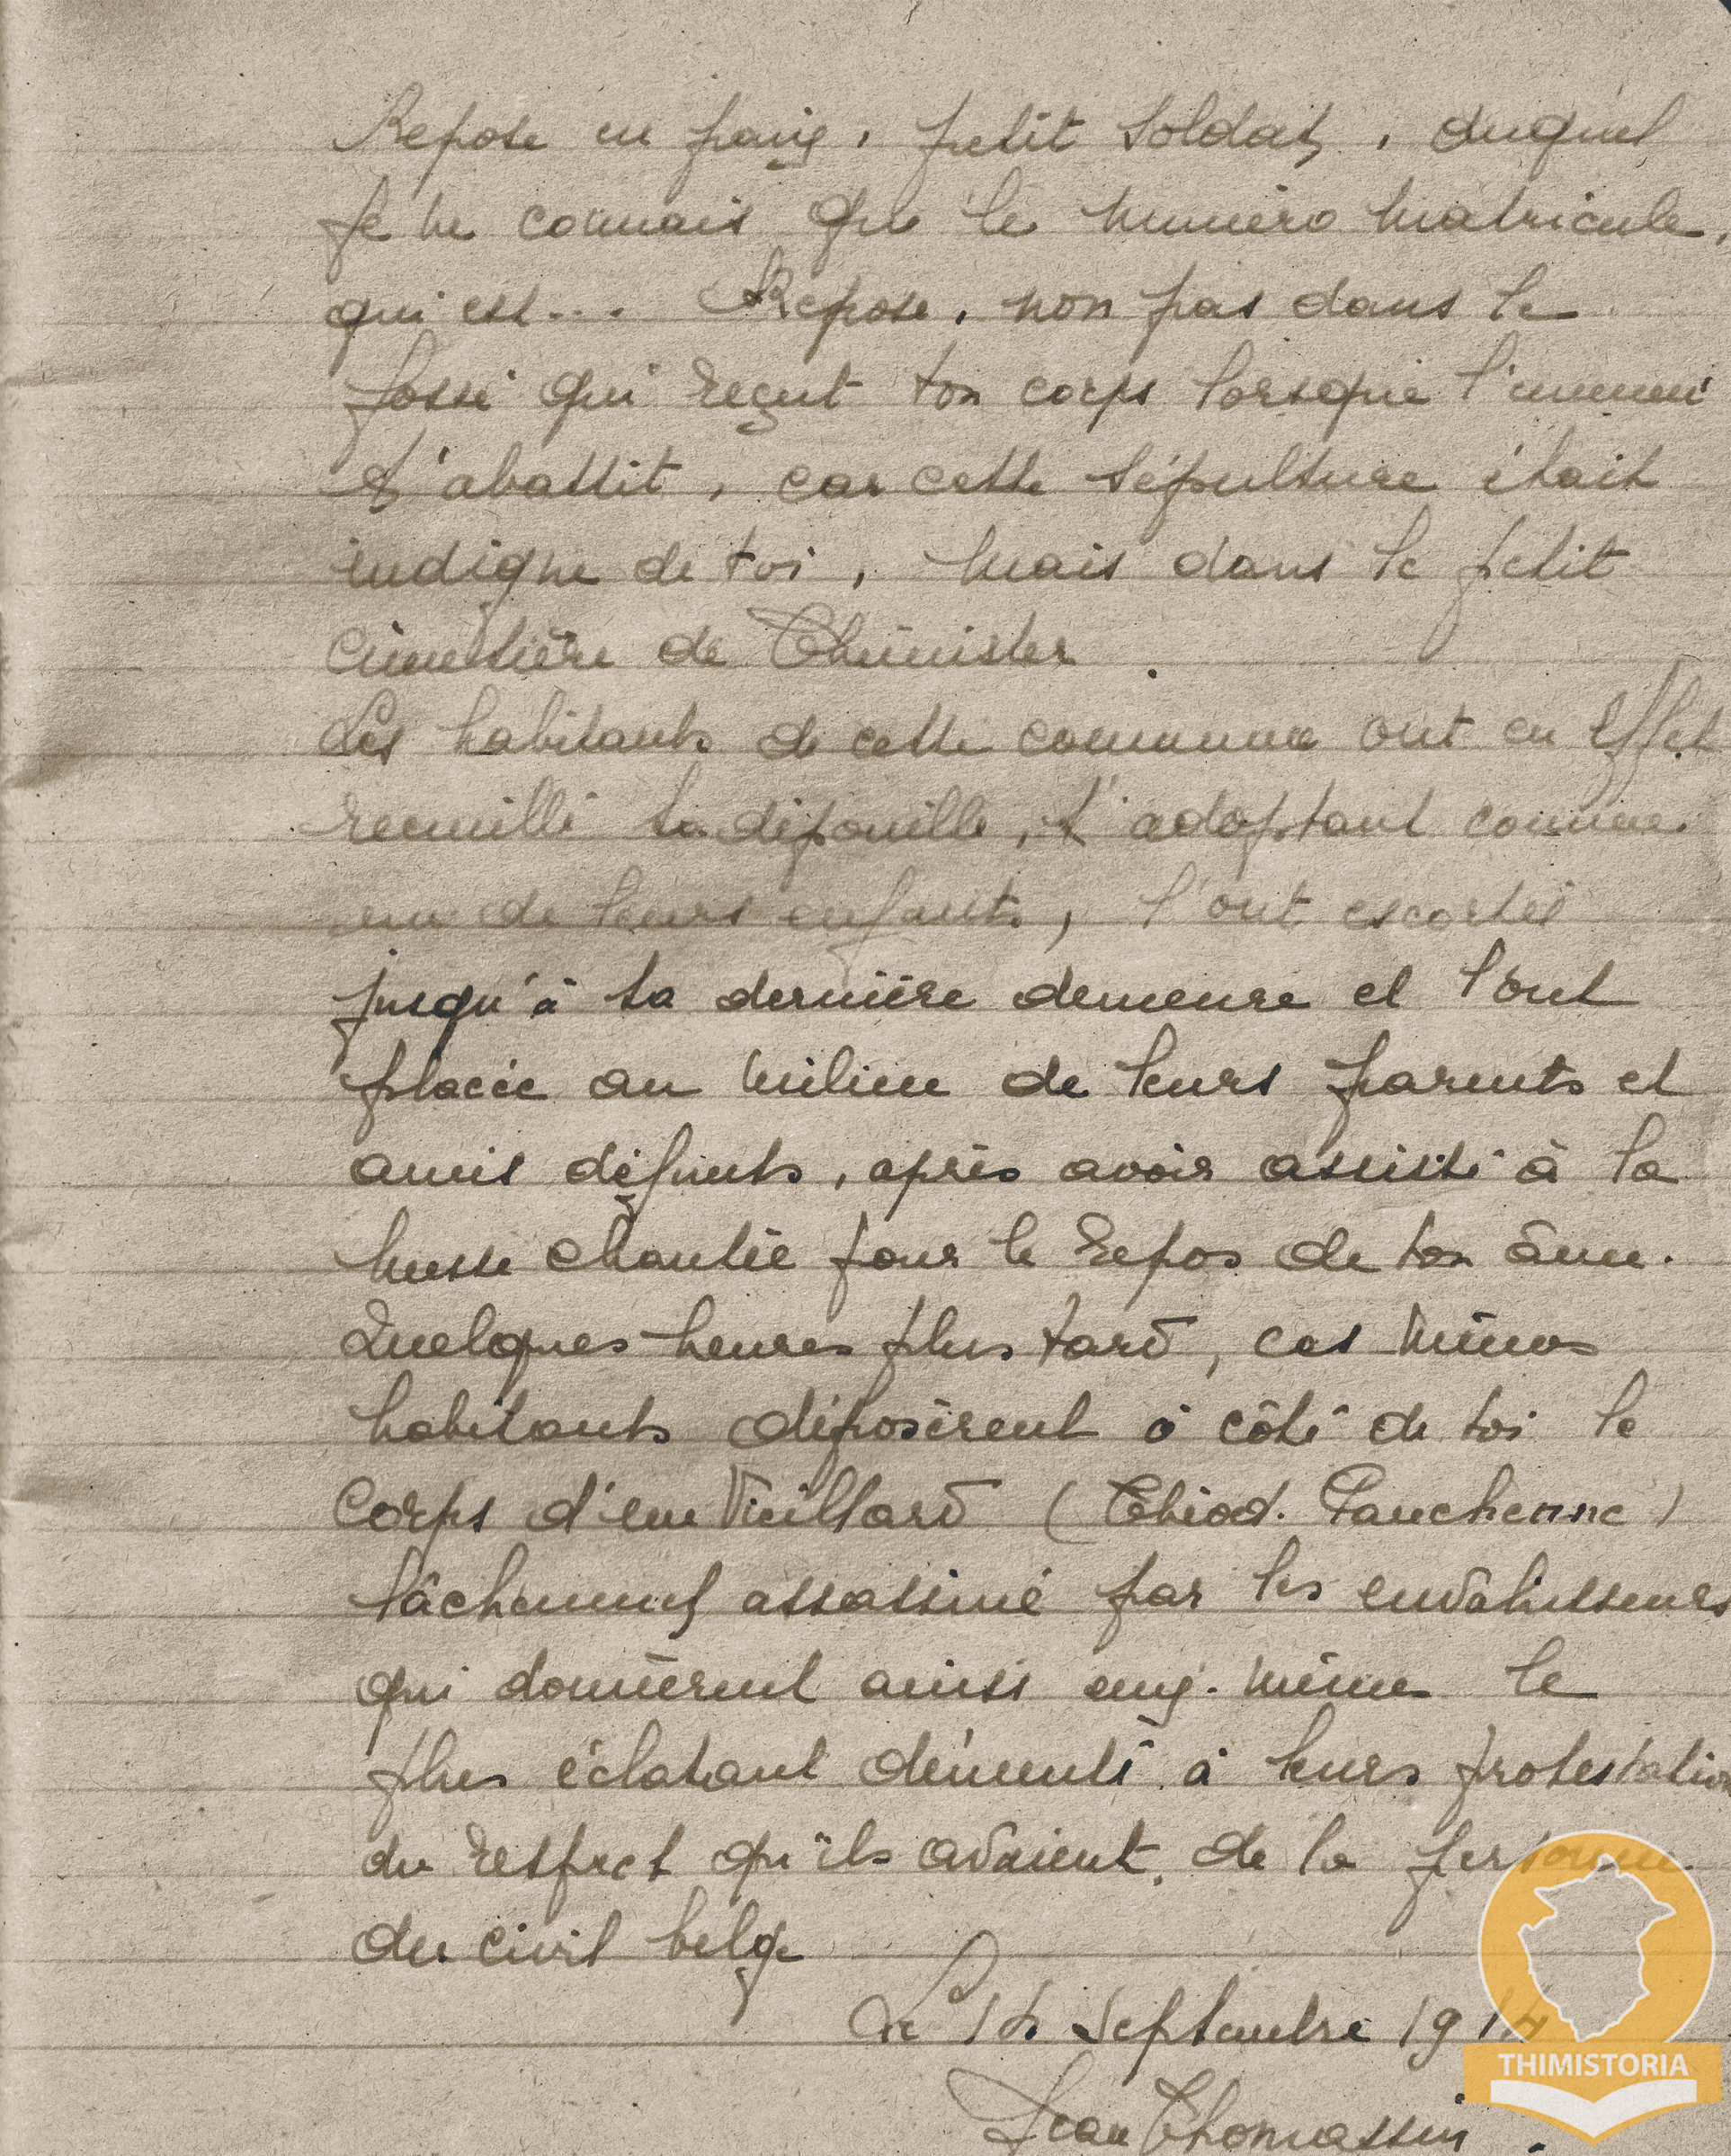 Repose en paix, petit soldat, duquel
je ne connais que le numéro matricule,
qui est... Repose, non pas dans le
fossé qui reçut ton corps lorsque l'ennemi
t'abattit, car cette sépulture était
indigne de toi, mais dans le petit
cimetière de Thimister.
Les habitants de cette commune ont en effet
recueilli ta dépouille, t'adoptant comme
un de leurs enfants, l'ont escortée
jusqu'à ta dernière demeure et l'ont
placée au milieu de leurs parents et
amis défunts, après avoir assisté à la
messe chantée pour le repos de ton âme.
Quelques heures plus tard, ces mêmes
habitants déposèrent à côté de toi le
corps d'un vieillard (Théod. Pauchenne)
lâchement assassiné par les envahisseurs
qui donnèrent ainsi eux-mêmes le
plus éclatant démenti à leurs protestation
du respect qu'ils avaient de la personne
du civil belge
Le 14 Septembre 1914
Jean Thomassin.
THIMISTORIA